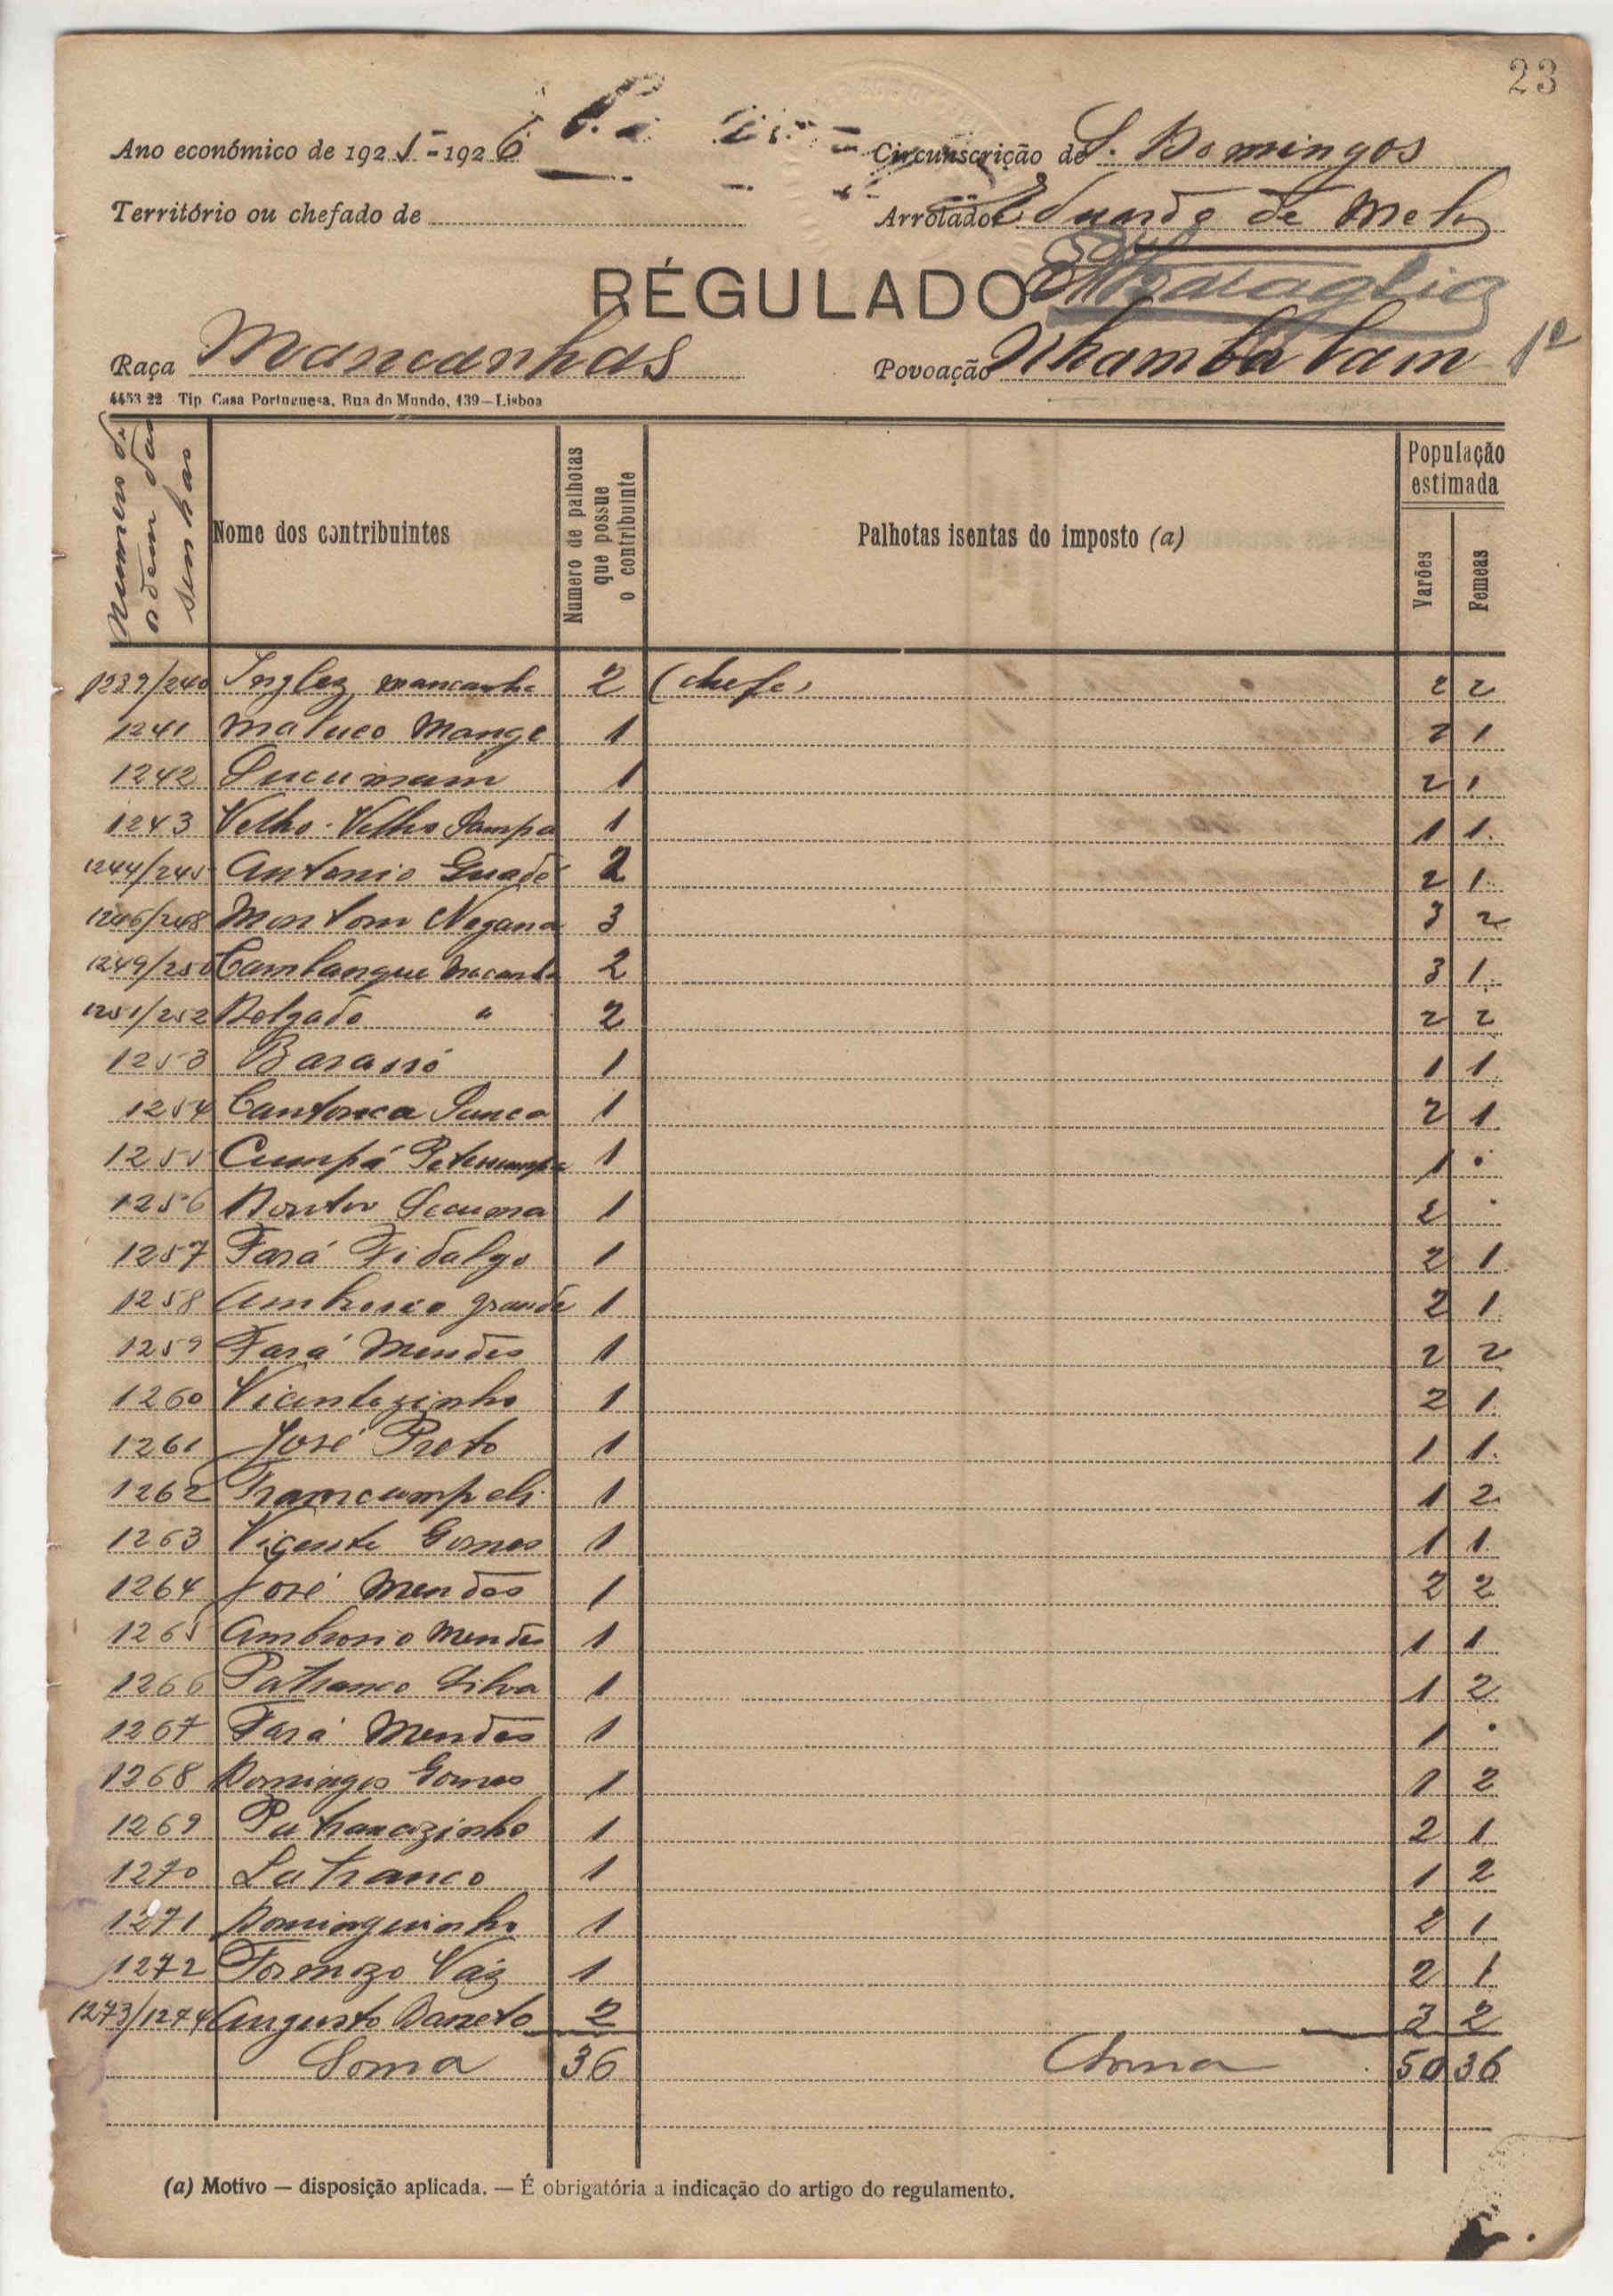 23
Ano económico de 1925-1926 Circunscrição de S. Domingos
Território ou chefado de Arrolador Eduardo de Melo
RÉGULADO
Raça Mancanhas Povoação Nhamba lam 1º
4453 22 Tip Casa Portuguesa, Rua do Mundo, 139—Lisboa
Numeros de ordem das senhas Nome dos contribuintes Numero de palhotas que possue o contribuinte Palhotas isentas do imposto (a) População estimada Varões Femeas
1239/240 Inglez mancanha 2 (chefe) 2 2
1241 Maluco Mange 1 2 1
1242 1 2 1
1243 Velho-Velho Sampa 1 1 1
1244/245 Antonio Guadé 2 2 1
1246/248 3 3 2
1249/250 2 3 1
1251/252 Delgado " 2 2 2
1253 Barassó 1 1 1
1254 1 2 1
1255 Cumpá 1 1 .
1256 1 2 .
1257 Fará Fidalgo 1 2 1
1258 Ambrosio grande 1 2 1
1259 Fará Mendes 1 2 2
1260 Vicentezinho 1 2 1
1261 José Preto 1 1 1
1262 1 1 2
1263 Vicente Gomes 1 1 1
1264 José Mendes 1 2 2
1265 Ambrosio Mendes 1 1 1
1266 Patranco Silva 1 1 2
1267 Fará Mendes 1 1 .
1268 Domingos Gomes 1 1 2
1269 1 2 1
1270 Latranco 1 1 2
1271 Dominguinho 1 2 1
1272 Formozo Váz 1 2 1
1273/1274 Augusto Barreto 2 3 2
Soma 36 Soma 50 36
(a) Motivo — disposição aplicada. — É obrigatória a indicação do artigo do regulamento.